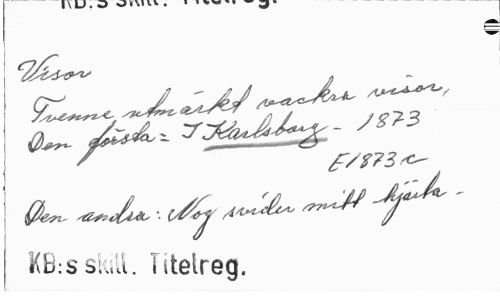 KB:s skill. Titelreg.
Visor
Tvenne utmärkt vackra visor,
Den första = I Karlsborg - 1873
E1873c
Den andra: Nog svider mitt hjärta -
KB:s skill. Titelreg.